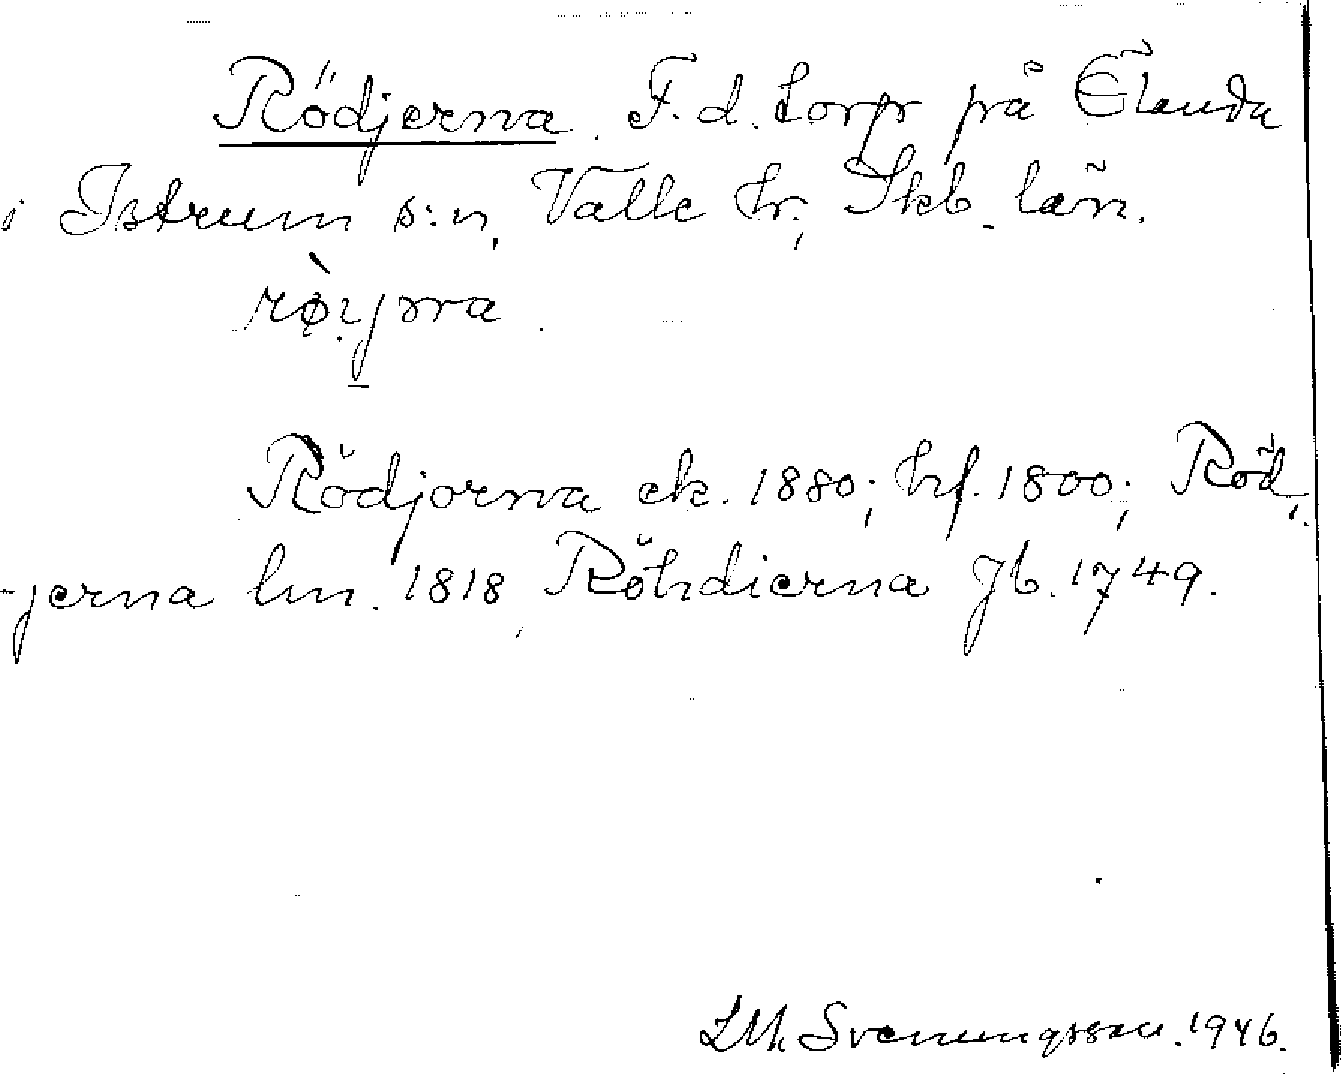 Rödjerna. F.d. torp på Elanda
i Istrum s:n, Valle hr; Skb. län.
Rödjorna ek. 1880; hf. 1800; Röd-
-jerna lm. 1818, Röhdierna Jb. 1749.
LM Svenungsson. 1946.